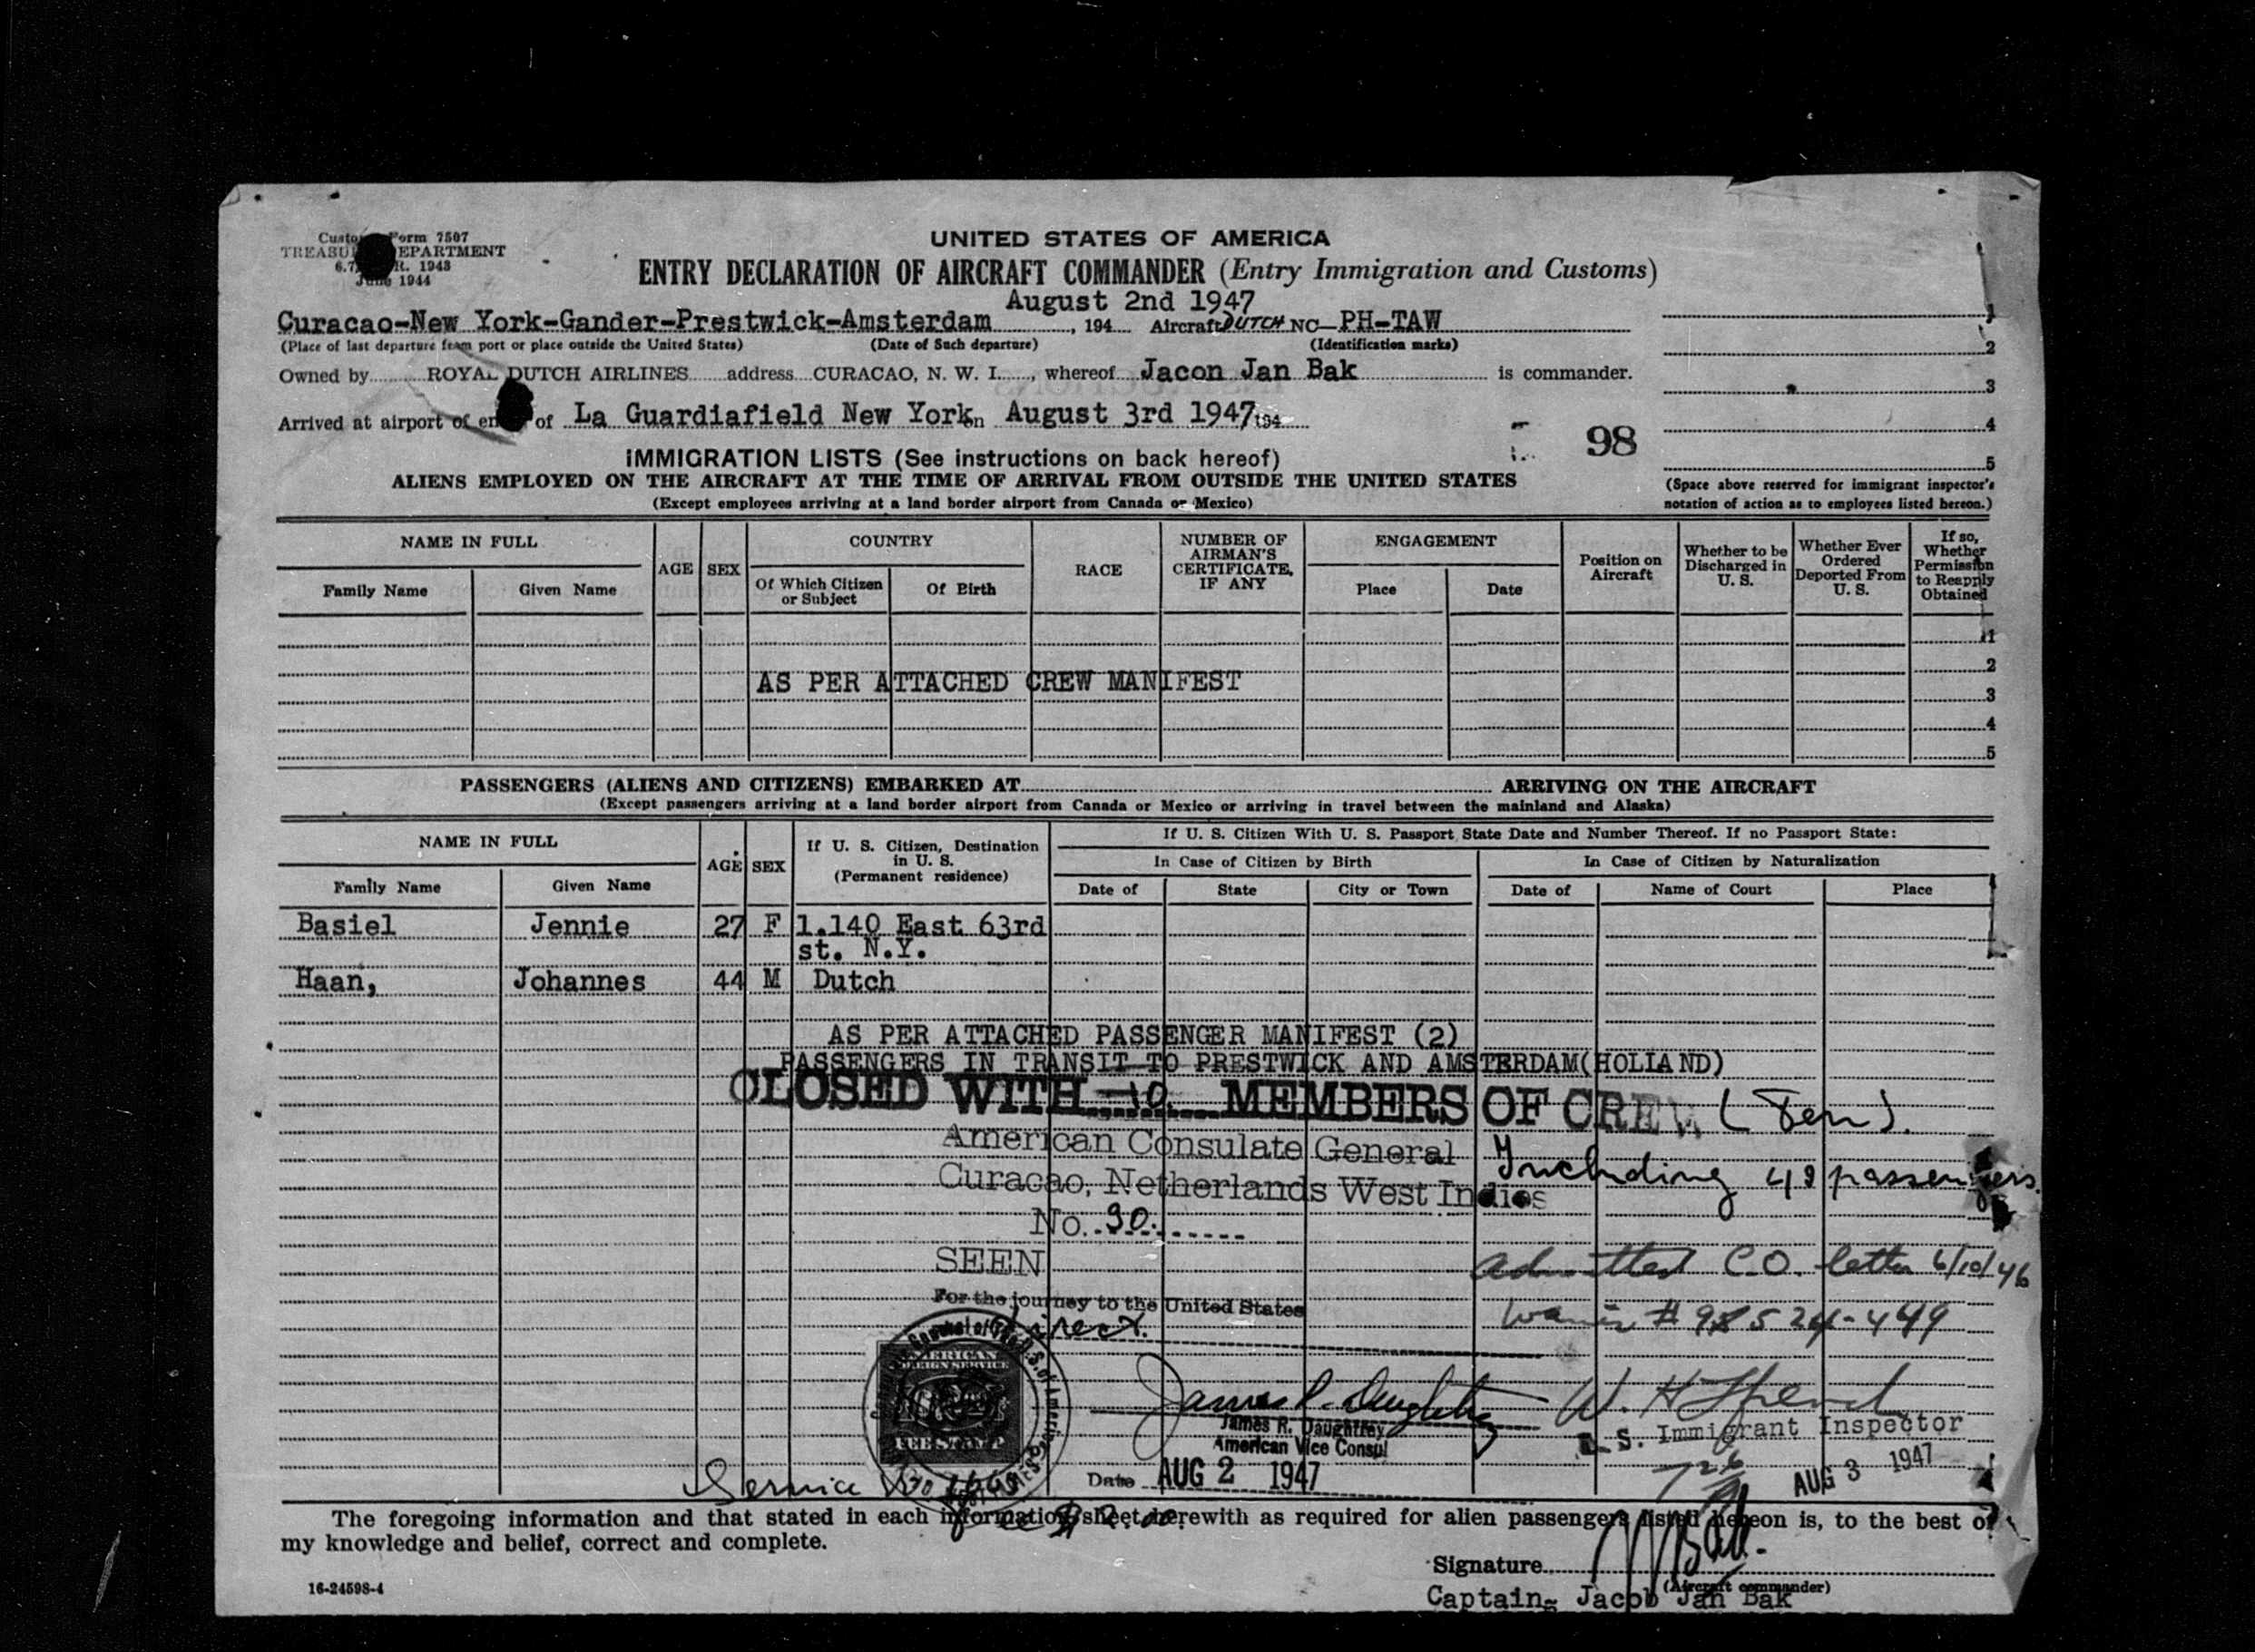 UNITED STATES OF AMERICA
Form 7507
TREASU EPARTMENT
6.7 R. 1943
June 1944
ENTRY DECLARATION OF AIRCRAFT COMMANDER (Entry Immigration and Customs)
August 2nd 1947
Curacao-New York-Gander-Prestwick-Amsterdam, 194 Aircraft DUTCH NC PH-TAW
(Place of last departure from port or place outside the United States) (Date of Such departure) (Identification marks)
Owned by ROYAL DUTCH AIRLINES address CURACAO, N. W. I., whereof Jacon Jan Bak is commander.
Arrived at airport of en of La Guardiafield New York on August 3rd 1947 194
98
1
2
3
4
5
(Space above reserved for immigrant inspector's
notation of action as to employees listed hereon.)
IMMIGRATION LISTS (See instructions on back hereof)
ALIENS EMPLOYED ON THE AIRCRAFT AT THE TIME OF ARRIVAL FROM OUTSIDE THE UNITED STATES
(Except employees arriving at a land border airport from Canada or Mexico)
NAME IN FULL
Family Name Given Name
AGE SEX
COUNTRY
Of Which Citizen or Subject
Of Birth
RACE
NUMBER OF AIRMAN'S CERTIFICATE, IF ANY
ENGAGEMENT
Place Date
Position on Aircraft
Whether to be Discharged in U. S.
Whether Ever Ordered Deported From U. S.
If so, Whether Permission to Reapply Obtained
1
2
AS PER ATTACHED CREW MANIFEST
3
4
5
PASSENGERS (ALIENS AND CITIZENS) EMBARKED AT ARRIVING ON THE AIRCRAFT
(Except passengers arriving at a land border airport from Canada or Mexico or arriving in travel between the mainland and Alaska)
NAME IN FULL
Family Name Given Name
AGE SEX
If U. S. Citizen, Destination in U. S. (Permanent residence)
If U. S. Citizen With U. S. Passport State Date and Number Thereof. If no Passport State:
In Case of Citizen by Birth
Date of State City or Town
In Case of Citizen by Naturalization
Date of Name of Court Place
Basiel Jennie 27 F 1.140 East 63rd
st. N.Y.
Haan, Johannes 44 M Dutch
AS PER ATTACHED PASSENGER MANIFEST (2)
PASSENGERS IN TRANSIT TO PRESTWICK AND AMSTERDAM(HOLLAND)
CLOSED WITH 10 MEMBERS OF CREW (Ten).
American Consulate General
Including 48 passengers.
Curacao, Netherlands West Indies
No. 90.
SEEN
admitted C.O. letter 6/10/46
For the journey to the United States
Direct.
AMERICAN
FOREIGN SERVICE
FEE STAMP
James R. Daughtrey
American Vice Consul
U. S. Immigrant Inspector
Date AUG 2 1947
AUG 3 1947
Service No
The foregoing information and that stated in each information sheet herewith as required for alien passengers listed hereon is, to the best of
my knowledge and belief, correct and complete.
Signature
(Aircraft commander)
Captain- Jacob Jan Bak
16-24598-4